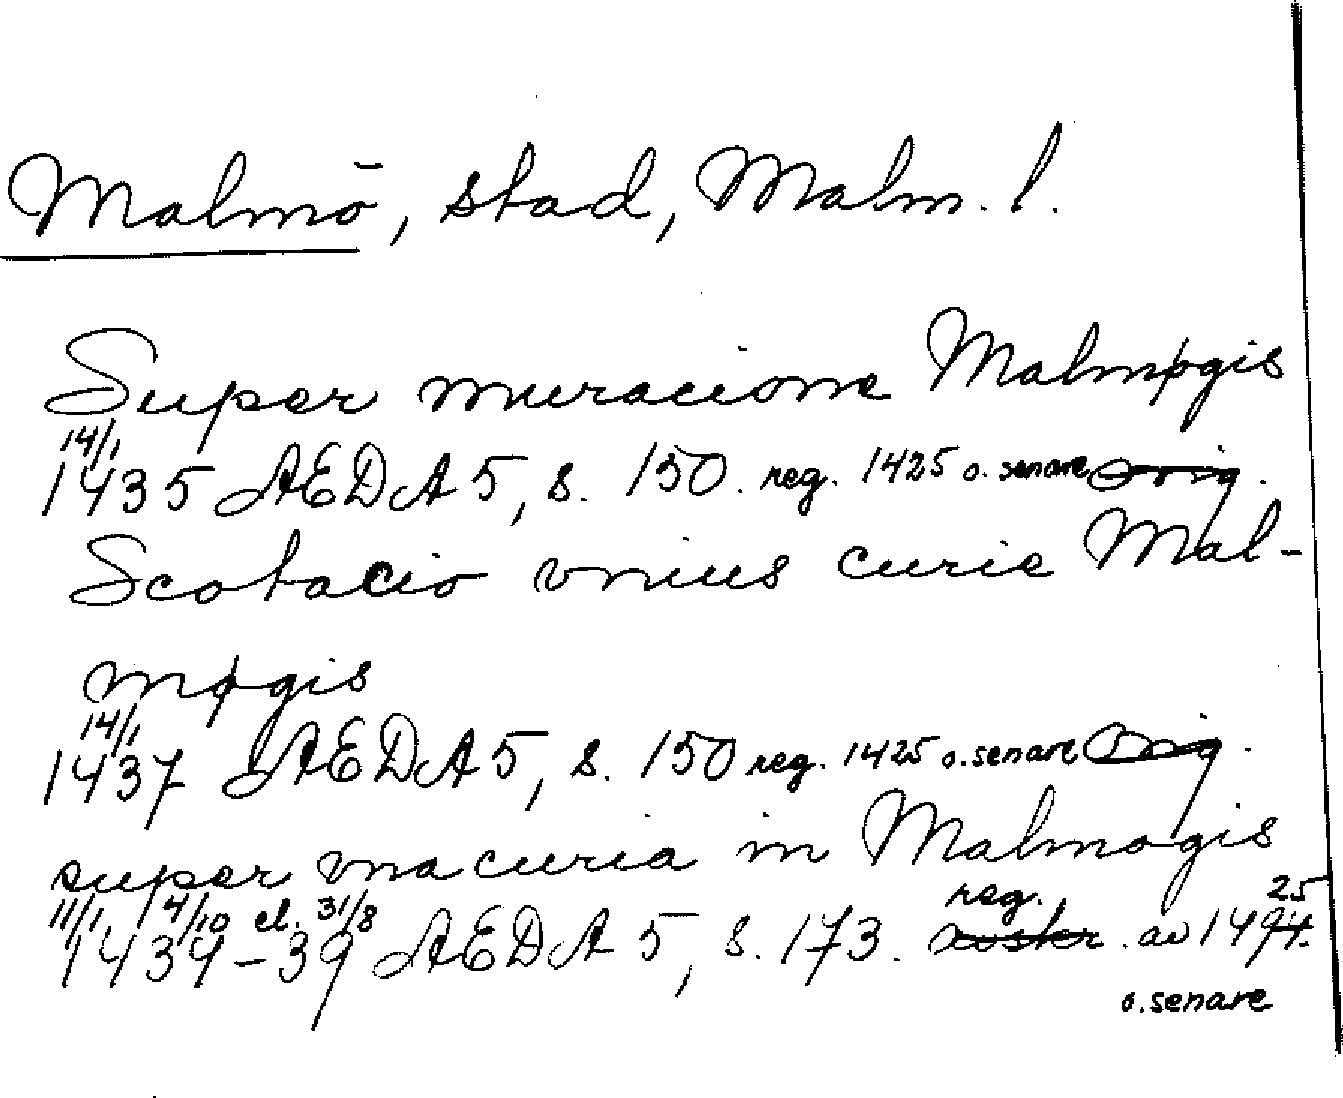 Malmö, stad, Malm. l.
Super muracione Malmøgis
14/1
1435 AEDA 5, s. 150. reg. 1425 o. senare orig.
Scotacio vnius curie Mal-
møgis
14/1
1437 AEDA 5, s. 150 reg. 1425 o. senare orig.
super vna curia in Malmøgis
11/1, 14/10 el. 31/8 reg. 25
1434-39 AEDA 5, s. 173. av 1494.
o. senare